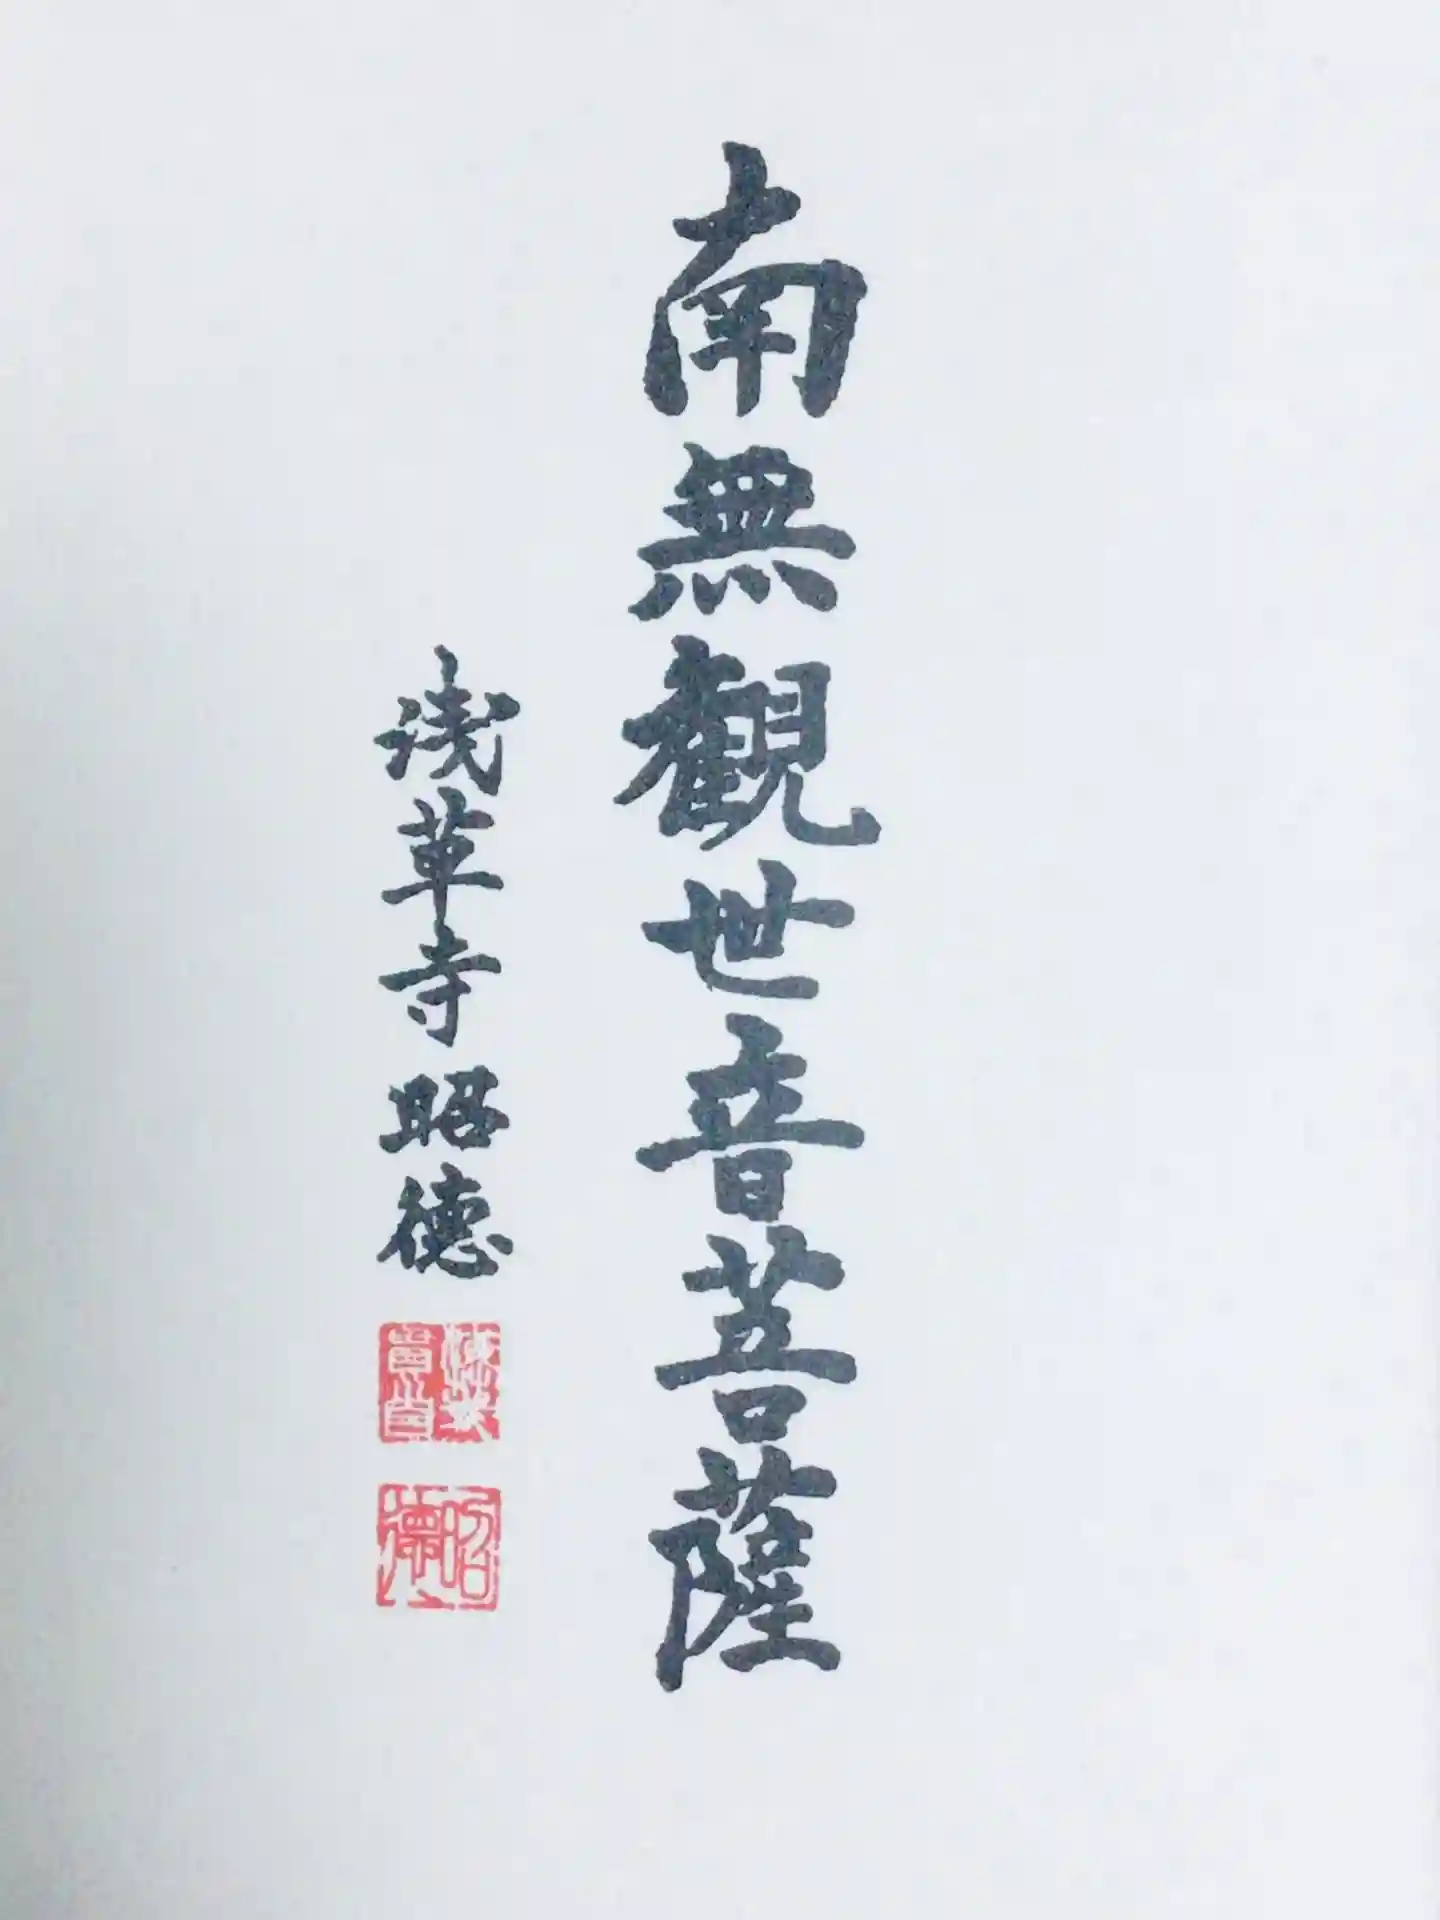 南無観世音菩薩
浅草寺昭徳
昭德